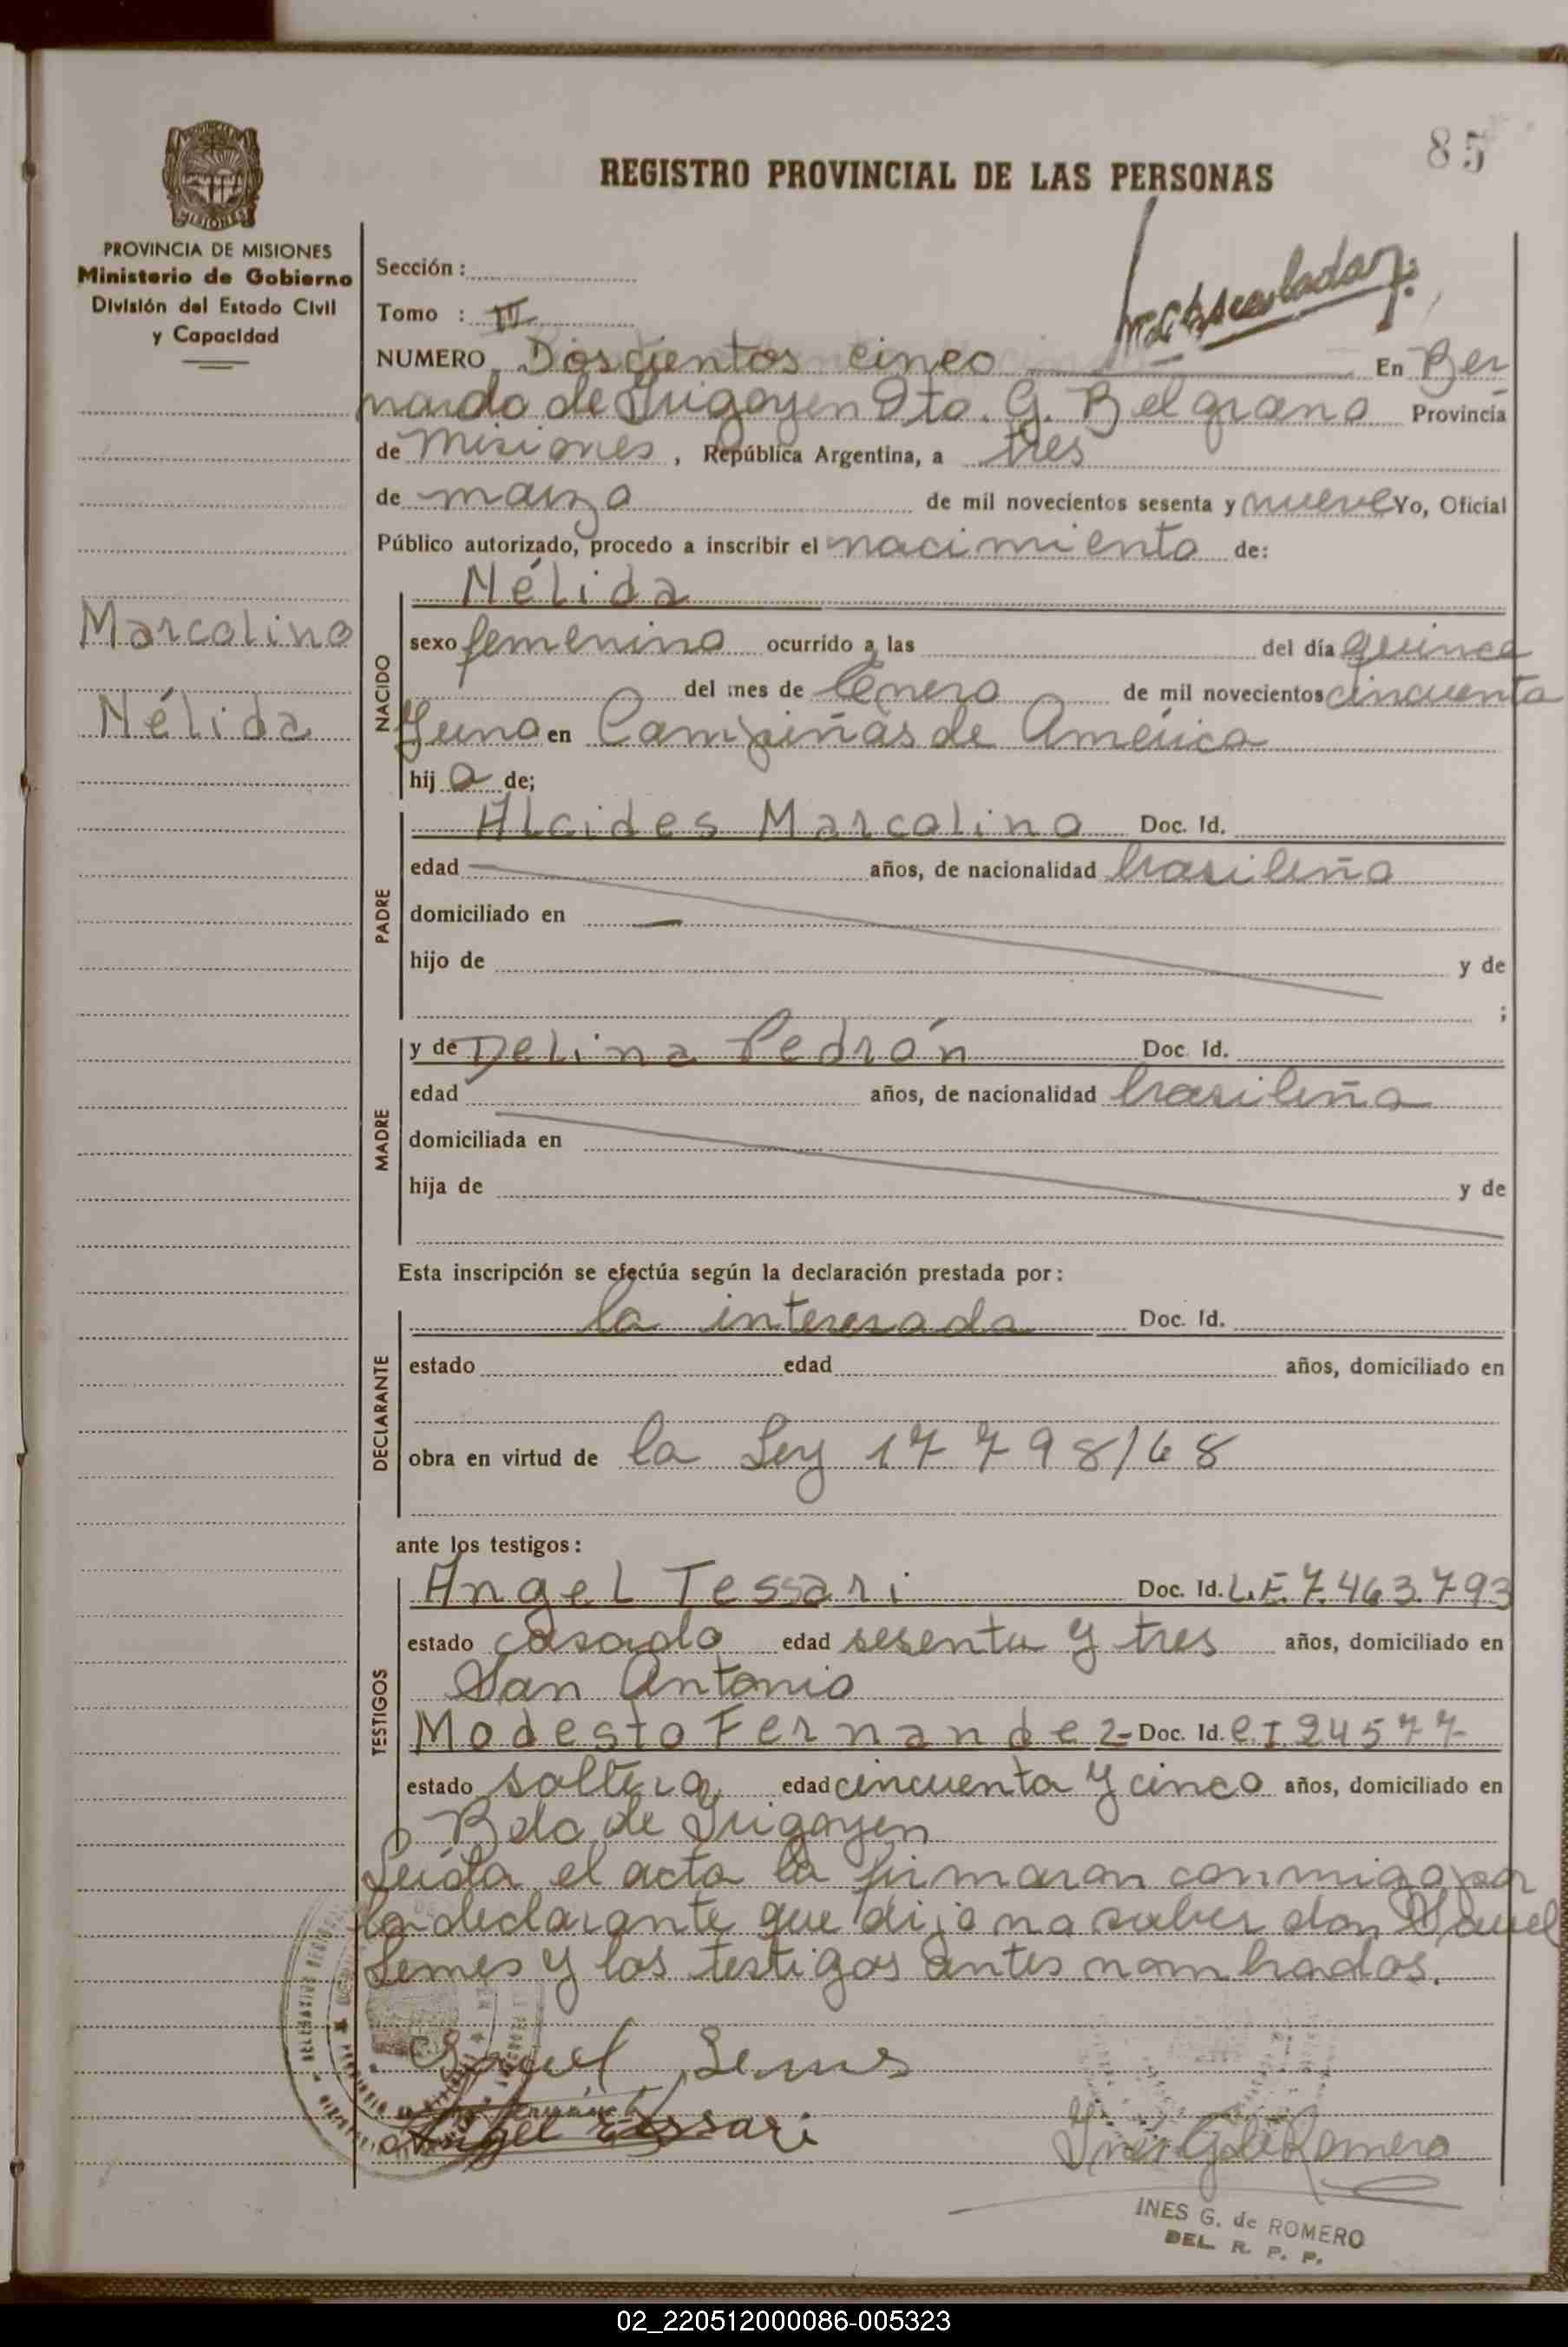 85
REGISTRO PROVINCIAL DE LAS PERSONAS
MISIONES
PROVINCIA DE MISIONES
Ministerio de Gobierno
División del Estado Civil
y Capacidad
Sección :
Tomo : III
NUMERO Doscientos cinco En Ber
nardo de Irigoyen Dto. G. Belgrano Provincia
de Misiones , República Argentina, a tres
de marzo de mil novecientos sesenta y nueve Yo, Oficial
Público autorizado, procedo a inscribir el nacimiento de:
Marcolino
Nélida
NACIDO
Nélida
sexo femenino ocurrido a las del día quince
del mes de Enero de mil novecientos cincuenta
y uno en Campiñas de América
hij a de;
PADRE
Alcides Marcolino Doc. Id.
edad años, de nacionalidad brasileño
domiciliado en
hijo de y de
;
MADRE
y de Delina Pedrón Doc. Id.
edad años, de nacionalidad brasileña
domiciliada en
hija de y de
Esta inscripción se efectúa según la declaración prestada por :
DECLARANTE
la interesada Doc. Id.
estado edad años, domiciliado en
obra en virtud de la Ley 17798/68
ante los testigos :
TESTIGOS
Angel Tessari Doc. Id. L.E.7.463.793
estado casado edad sesenta y tres años, domiciliado en
San Antonio
Modesto Fernandez Doc. Id. C.I.24577
estado soltero edad cincuenta y cinco años, domiciliado en
Bdo de Irigoyen
Leída el acta la firmaron conmigo por
la declarante que dijo no saber don
Lemes y los testigos antes nombrados.
Lemes
Angel Tessari
Ines G de Romero
INES G. de ROMERO
DEL. R. P. P.
02_220512000086-005323